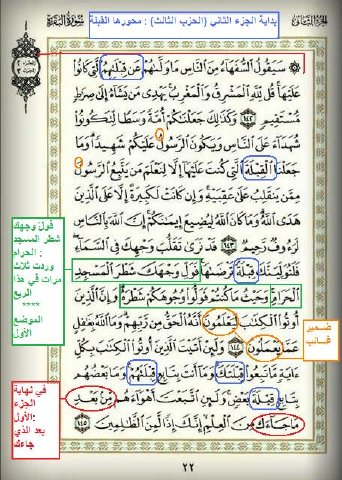 الجزء الثاني
بداية الجزء الثاني (الحزب الثالث) : محورها القبلة
سورة البقرة
سَيَقُولُ السُّفَهَاءُ مِنَ النَّاسِ مَا وَلَّاهُمْ عَن قِبْلَتِهِمُ الَّتِي كَانُوا
عَلَيْهَا قُل لِّلَّهِ الْمَشْرِقُ وَالْمَغْرِبُ يَهْدِي مَن يَشَاءُ إِلَى صِرَاطٍ
مُّسْتَقِيمٍ ١٤٢ وَكَذَلِكَ جَعَلْنَاكُمْ أُمَّةً وَسَطًا لِّتَكُونُوا
شُهَدَاءَ عَلَى النَّاسِ وَيَكُونَ الرَّسُولُ عَلَيْكُمْ شَهِيدًا وَمَا
جَعَلْنَا الْقِبْلَةَ الَّتِي كُنتَ عَلَيْهَا إِلَّا لِنَعْلَمَ مَن يَتَّبِعُ الرَّسُولَ
مِمَّن يَنقَلِبُ عَلَى عَقِبَيْهِ وَإِن كَانَتْ لَكَبِيرَةً إِلَّا عَلَى الَّذِينَ
هَدَى اللَّهُ وَمَا كَانَ اللَّهُ لِيُضِيعَ إِيمَانَكُمْ إِنَّ اللَّهَ بِالنَّاسِ
لَرَءُوفٌ رَّحِيمٌ ١٤٣ قَدْ نَرَى تَقَلُّبَ وَجْهِكَ فِي السَّمَاءِ
فَلَنُوَلِّيَنَّكَ قِبْلَةً تَرْضَاهَا فَوَلِّ وَجْهَكَ شَطْرَ الْمَسْجِدِ
الْحَرَامِ وَحَيْثُ مَا كُنتُمْ فَوَلُّوا وُجُوهَكُمْ شَطْرَهُ وَإِنَّ الَّذِينَ
أُوتُوا الْكِتَابَ لَيَعْلَمُونَ أَنَّهُ الْحَقُّ مِن رَّبِّهِمْ وَمَا اللَّهُ بِغَافِلٍ
عَمَّا يَعْمَلُونَ ١٤٤ وَلَئِنْ أَتَيْتَ الَّذِينَ أُوتُوا الْكِتَابَ بِكُلِّ
ءَايَةٍ مَّا تَبِعُوا قِبْلَتَكَ وَمَا أَنتَ بِتَابِعٍ قِبْلَتَهُمْ وَمَا بَعْضُهُم
بِتَابِعٍ قِبْلَةَ بَعْضٍ وَلَئِنِ اتَّبَعْتَ أَهْوَاءَهُم مِّن بَعْدِ
مَا جَاءَكَ مِنَ الْعِلْمِ إِنَّكَ إِذًا لَّمِنَ الظَّالِمِينَ ١٤٥
٢٢
فول وجهك
شطر المسجد
الحرام :
وردت ثلاث
مرات في هذا
الربع
****
الموضع
الأول
ضمير
غائب
في نهاية
الجزء
الأول:
بعد الذي
جاءك